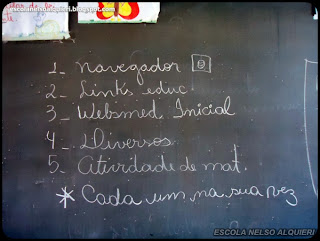 escolanelsoalquieri.blogspot.com
1_ navegador
2_ Links educ.
3_ Websmed Inicial
4_ Diversos
5_ atividade de mat.
* Cada um na sua vez
ESCOLA NELSO ALQUIERI